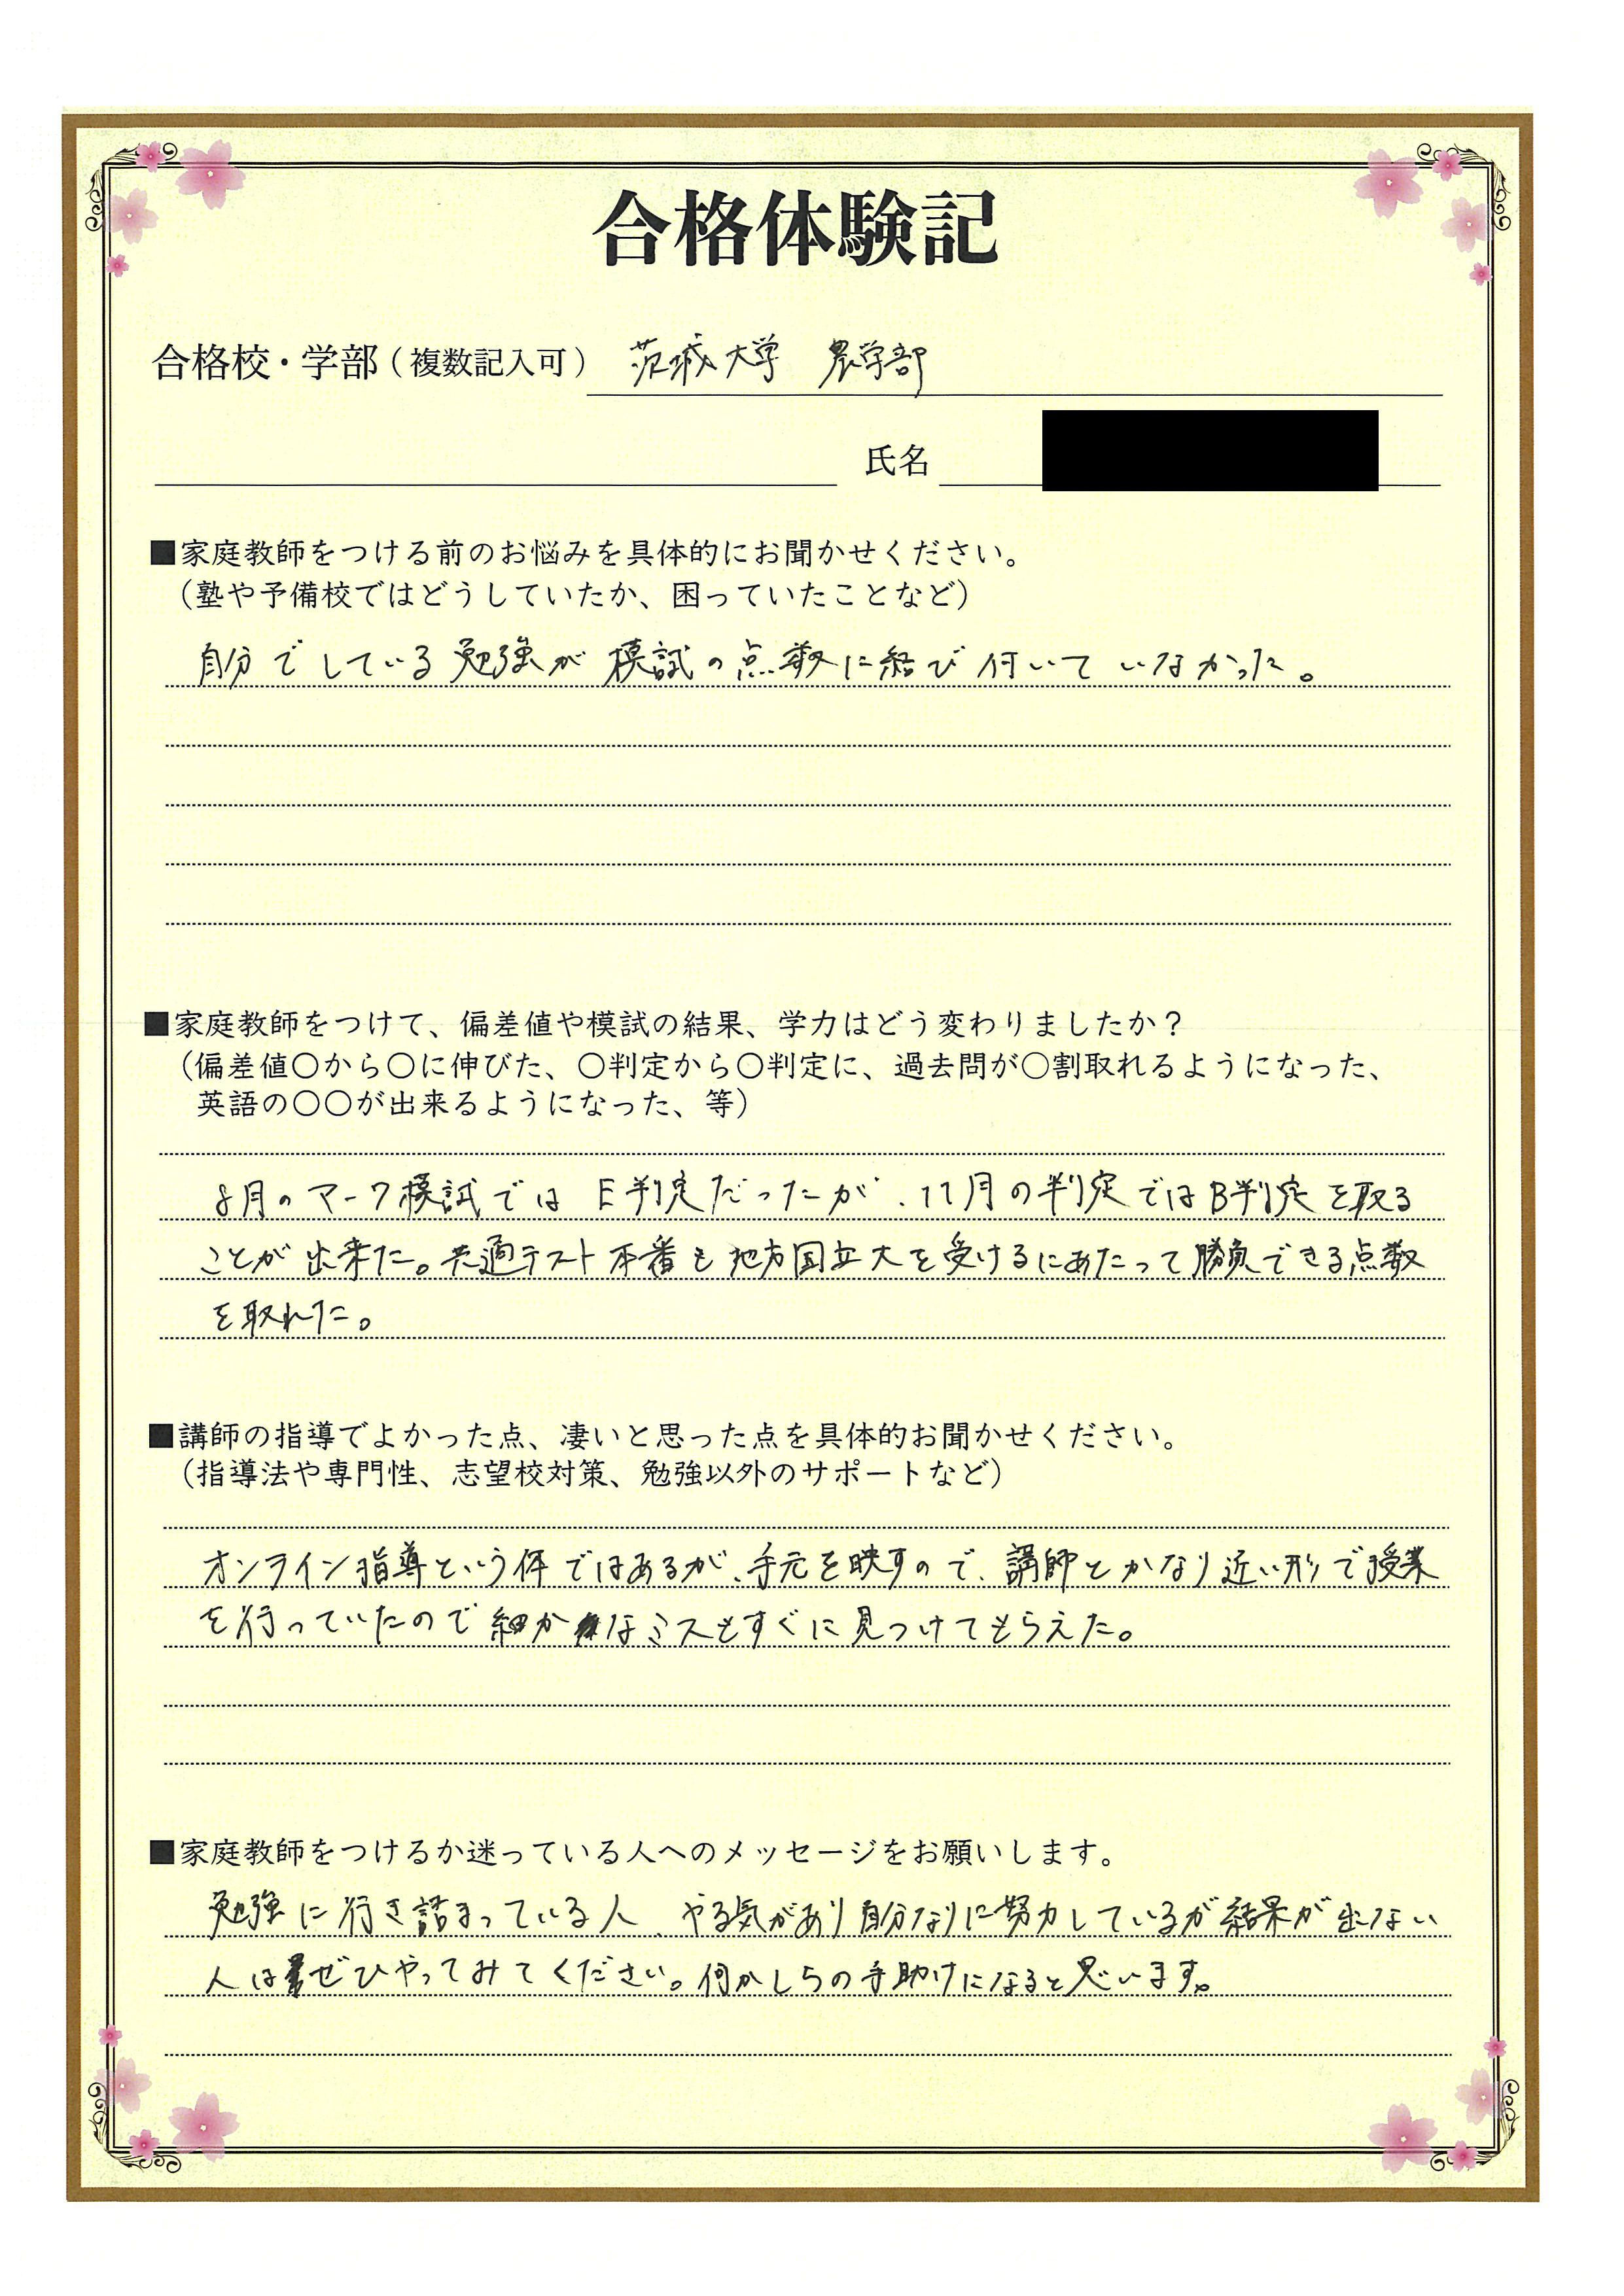 合格体験記
合格校・学部（複数記入可） 茨城大学 農学部
氏名
■家庭教師をつける前のお悩みを具体的にお聞かせください。
（塾や予備校ではどうしていたか、困っていたことなど）
自分でしている勉強が模試の点数に結び付いていなかった。
■家庭教師をつけて、偏差値や模試の結果、学力はどう変わりましたか？
（偏差値〇から〇に伸びた、〇判定から〇判定に、過去問が〇割取れるようになった、
英語の〇〇が出来るようになった、等）
8月のマーク模試ではE判定だったが、11月の判定ではB判定を取る
ことが出来た。共通テスト本番も地方国立大を受けるにあたって勝負できる点数
を取れた。
■講師の指導でよかった点、凄いと思った点を具体的お聞かせください。
（指導法や専門性、志望校対策、勉強以外のサポートなど）
オンライン指導という体ではあるが、手元を映すので、講師とかなり近い形で授業
を行っていたので細かなミスもすぐに見つけてもらえた。
■家庭教師をつけるか迷っている人へのメッセージをお願いします。
勉強に行き詰まっている人、やる気があり自分なりに努力しているが結果が出ない
人はぜひやってみてください。何かしらの手助けになると思います。